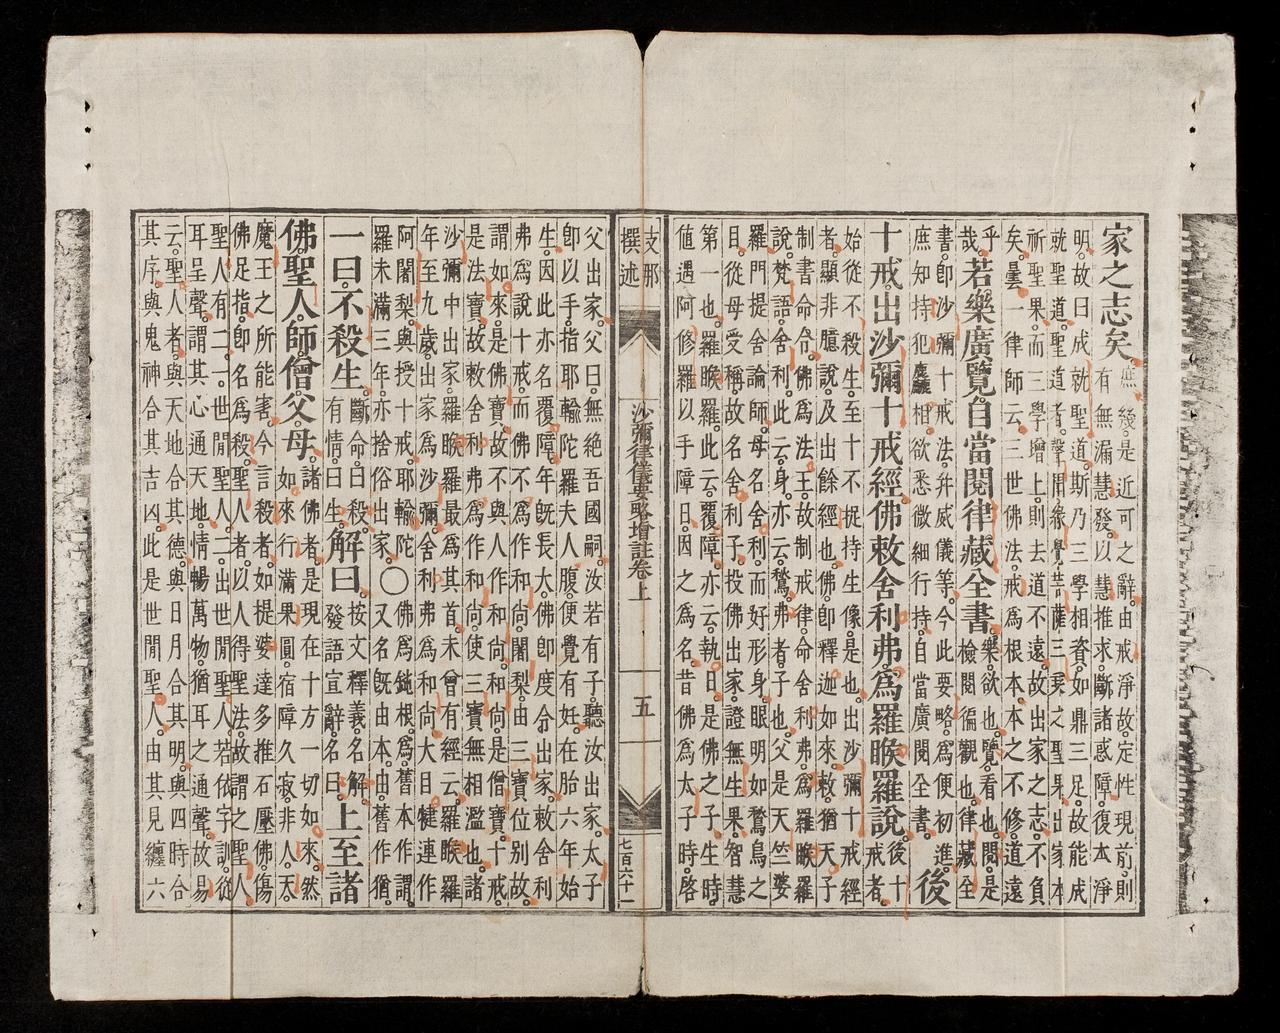 家之志矣
庶幾是近可之辭由戒淨故定性現前則
有無漏慧發以慧推求斷諸惑障復本淨
明故曰成就聖道斯乃三學相資如鼎三足故能成
就聖道聖道者聲聞緣覺菩薩三乘之聖果出家本
祈聖果而三學增上則去道不遠故出家之志不負
矣曇一律師云三世佛法戒為根本本之不修道遠
乎
哉
若樂廣覽自當閱律藏全書
樂欲也覽看也閱是
檢閱徧觀也律藏全
書即沙彌十戒法并威儀等今此要略為便初進
庶知持犯相欲悉微細行持自當廣閱全書
後
十戒出沙彌十戒經佛敕舍利弗為羅睺羅說
後十
戒者
始從不殺生至十不捉持生像是也出沙彌十戒經
者顯非臆說及出餘經也佛即釋迦如來敕猶天子
制書命令佛為法王故制戒律命舍利弗為羅睺羅
說梵語舍利此云身亦云鶖弗者子也父是天竺婆
羅門提舍論師母名舍利而好形身眼明如鶖鳥之
目從母受稱故名舍利子投佛出家證無生果智慧
第一也羅睺羅此云覆障亦云執日是佛之子生時
值遇阿修羅以手障日因之為名昔佛為太子時啓
支那
撰述
沙彌律儀要略增註卷上
五
七百六十一
父出家父曰無絕吾國嗣汝若有子聽汝出家太子
卽以手指耶輸陀羅夫人腹便覺有妊在胎六年始
生因此亦名覆障年旣長大佛卽度令出家敕舍利
弗為說十戒而佛不為作和尚闍梨由三寶位別故
謂如來是佛寶故不與人作和尚和尚是僧寶十戒
是法寶故敕舍利弗為作和尚使三寶無相濫也諸
沙彌中出家羅睺羅最為其首未曾有經云羅睺羅
年至九歲出家為沙彌舍利弗為和尚大目犍連作
阿闍梨與授十戒耶輸陀〇佛為鈍根為舊本作謂
羅未滿三年亦捨俗出家又名旣由本由舊作猶
一曰不殺生
斷命曰殺
有情曰生
解曰
按文釋義名解
發語宣辭名曰
上至諸
佛聖人師僧父母
諸佛者是現在十方一切如來然
如來行滿果圓宿障久寂非人天
魔王之所能害今言殺者如提婆達多推石壓佛傷
佛足指卽名為殺聖人者以人得聖法故謂之聖人
聖人有二一世閒聖人二出世閒聖人若依字訓從
耳呈聲謂其心通天地情暢萬物猶耳之通聲故易
云聖人者與天地合其德與日月合其明與四時合
其序與鬼神合其吉凶此是世閒聖人由其見纏六